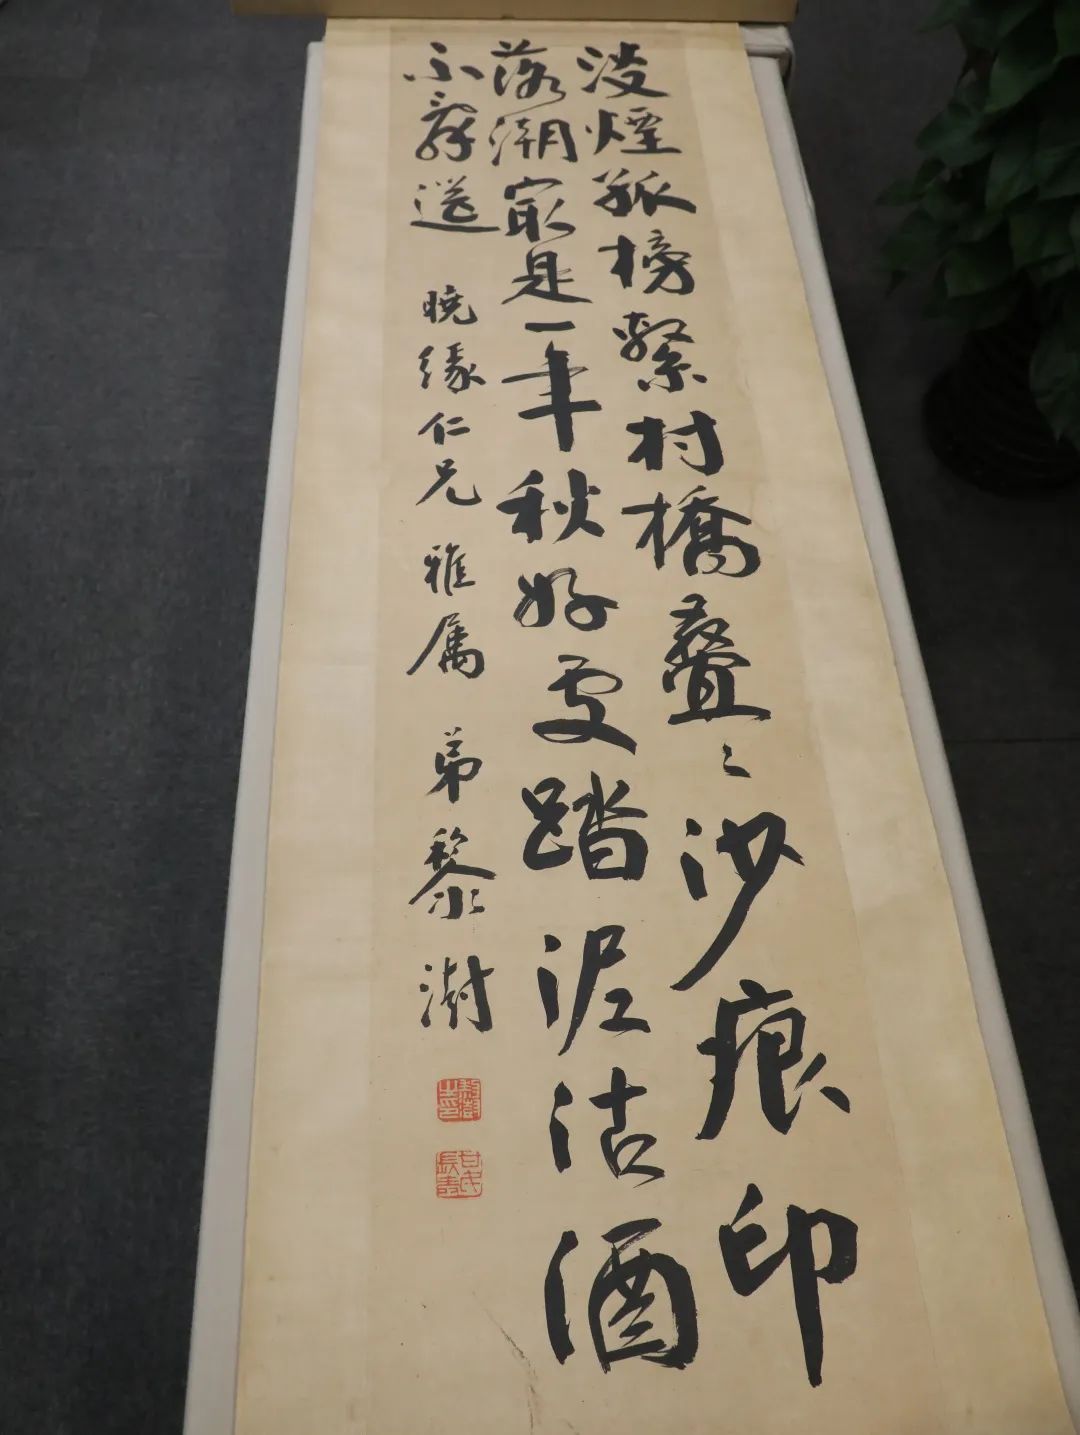 淡煙孤榜繫村橋叠〻沙痕印
落潮㝡是一年秋好處踏泥沽酒
不辭遥
曉緣仁兄 雅属 弟黎澍